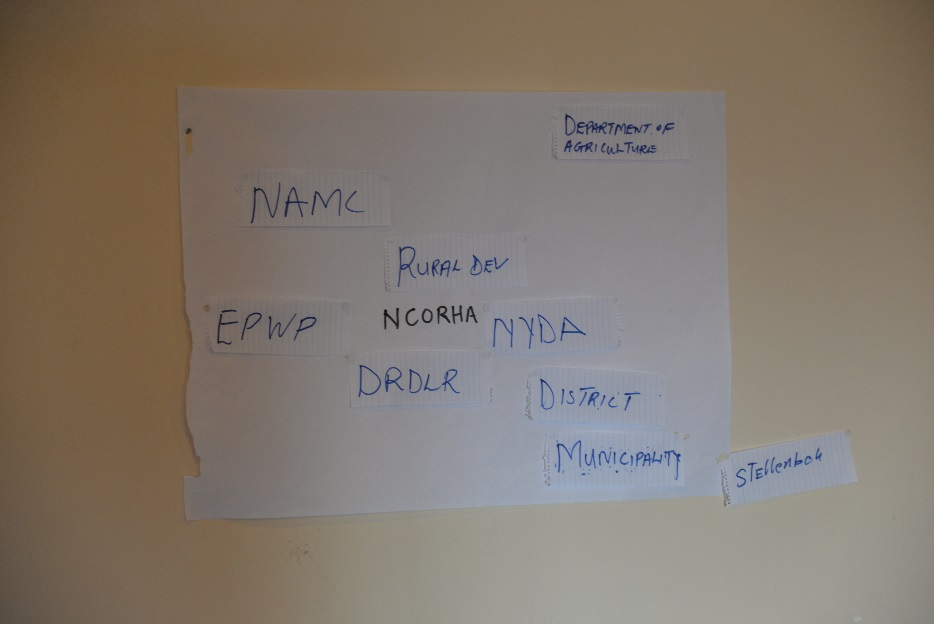 DEPARTMENT OF
AGRICULTURE
NAMC
RURAL DEV
EPWP
NCORHA
NYDA
DRDLR
DISTRICT
MUNICIPALITY
STellenboh